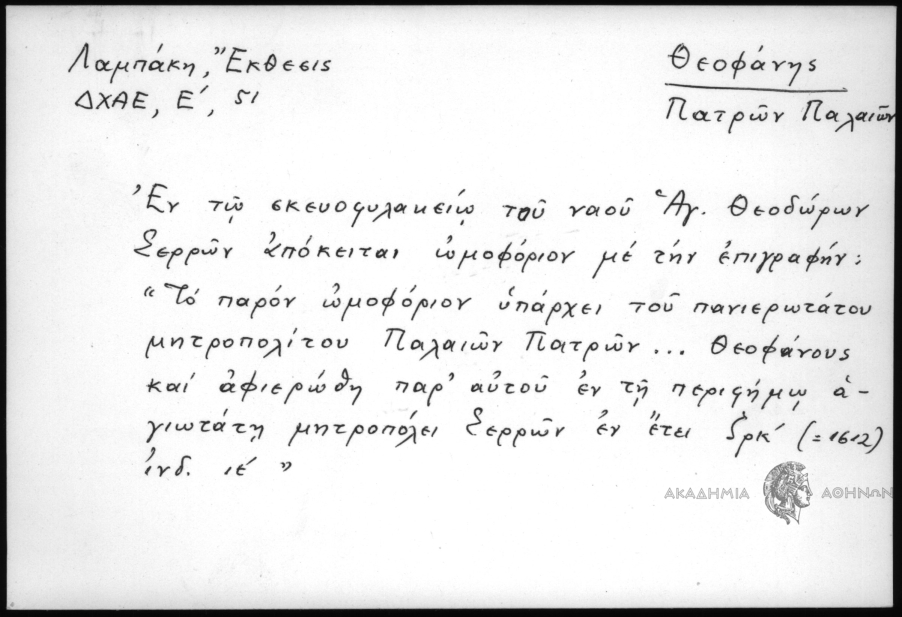 Λαμπάκη, Ἔκθεσις
ΔΧΑΕ, Ε΄, 51
Θεοφάνης
Πατρῶν Παλαιῶν
Ἐν τῷ σκευοφυλακείῳ τοῦ ναοῦ Ἁγ. Θεοδώρων
Σερρῶν ἀπόκειται ὠμοφόριον μέ τήν ἐπιγραφήν:
"Τό παρόν ὠμοφόριον ὑπάρχει τοῦ πανιερωτάτου
μητροπολίτου Παλαιῶν Πατρῶν ... Θεοφάνους
καί ἀφιερώθη παρ' αὐτοῦ ἐν τῇ περιφήμῳ ἁ-
γιωτάτῃ μητροπόλει Σερρῶν ἐν ἔτει ζρκ΄ (=1612)
ἰνδ. ιέ"
ΑΚΑΔΗΜΙΑ ΑΘΗΝΩΝ